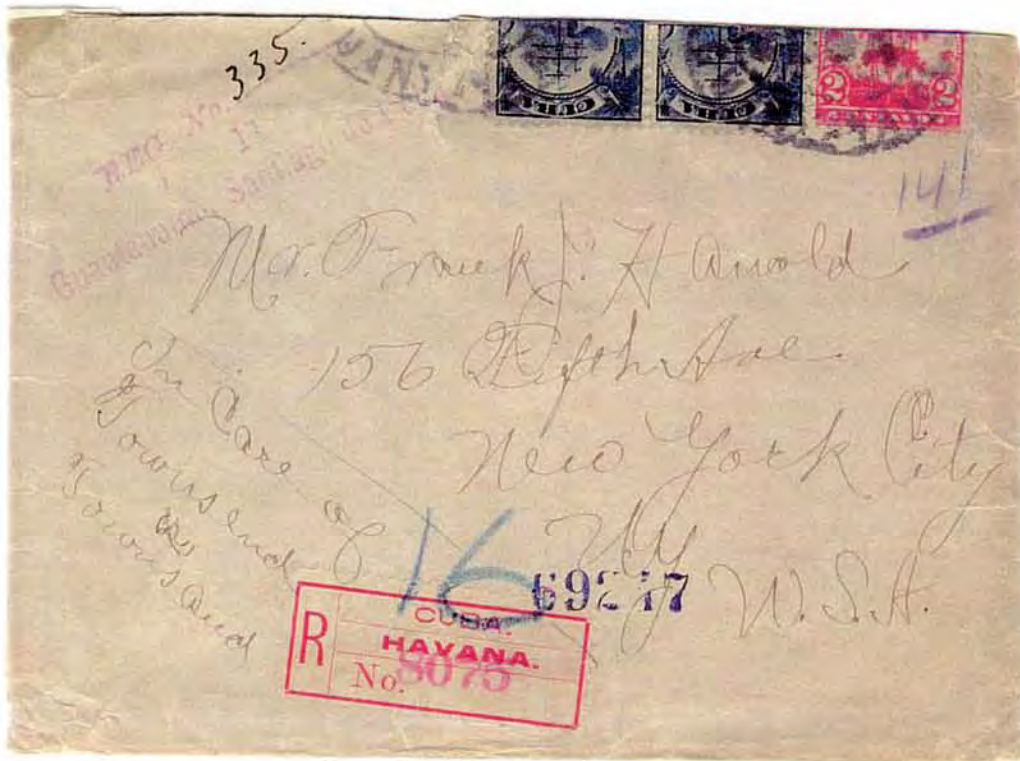 335.
No.
Guantanamo, Santiago de
CUBA
CUBA
2 2
14
Mr. Frank J. Harold
156 Fifth Ave.
New York City
NY
U.S.A.
In Care of
Townsend
&
Townsend
16
R
CUBA.
HAVANA.
No. 8075